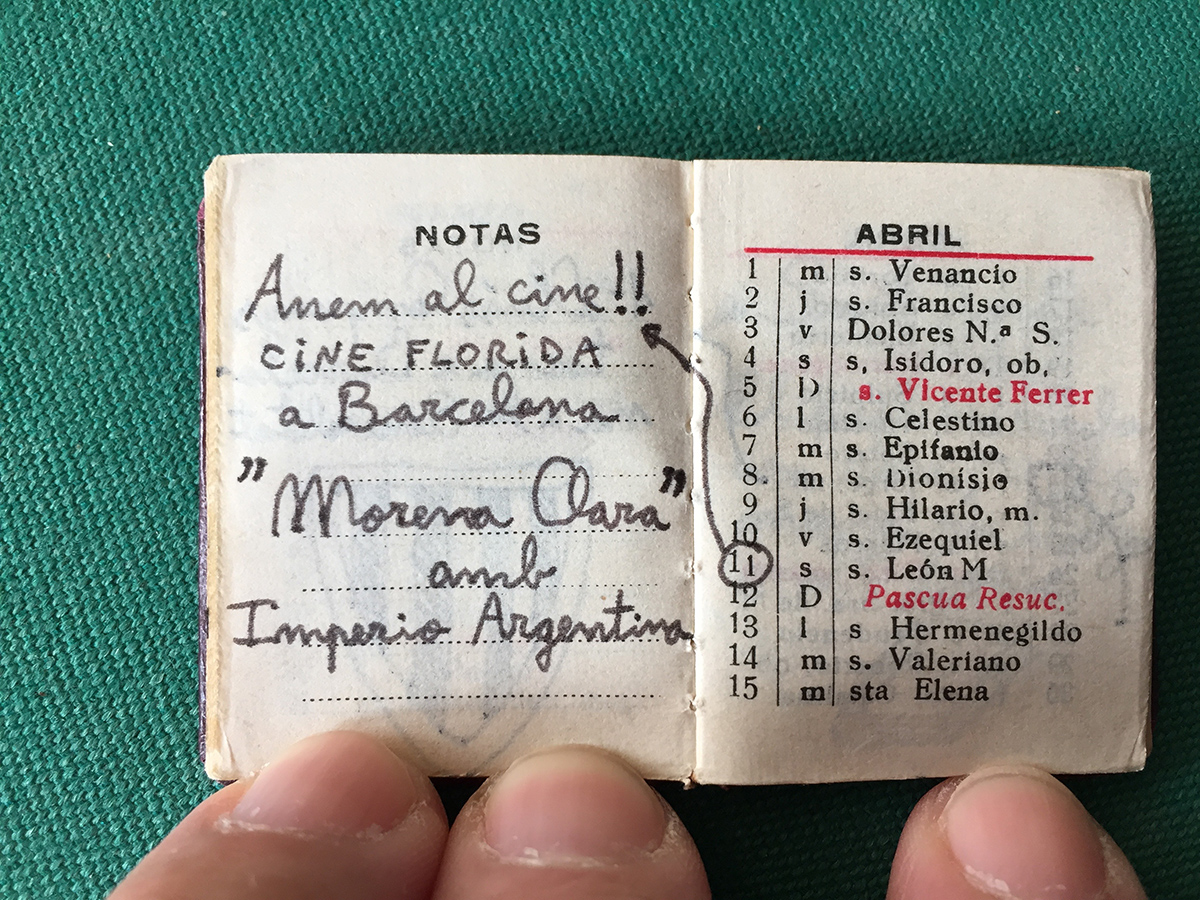 NOTAS
Anem al cine!!
CiNE FLORiDA
a Barcelona
"Morena Clara"
amb
Imperio Argentina
ABRIL
1 m s. Venancio
2 j s. Francisco
3 v Dolores N.ª S.
4 s s, Isidoro, ob,
5 D s. Vicente Ferrer
6 l s. Celestino
7 m s. Epifanio
8. m s. Dionísio
9 j s. Hilario, m.
10 v s. Ezequiel
11 s s. León M
12 D Pascua Resuc.
13 l s Hermenegildo
14 m s. Valeriano
15 m sta Elena